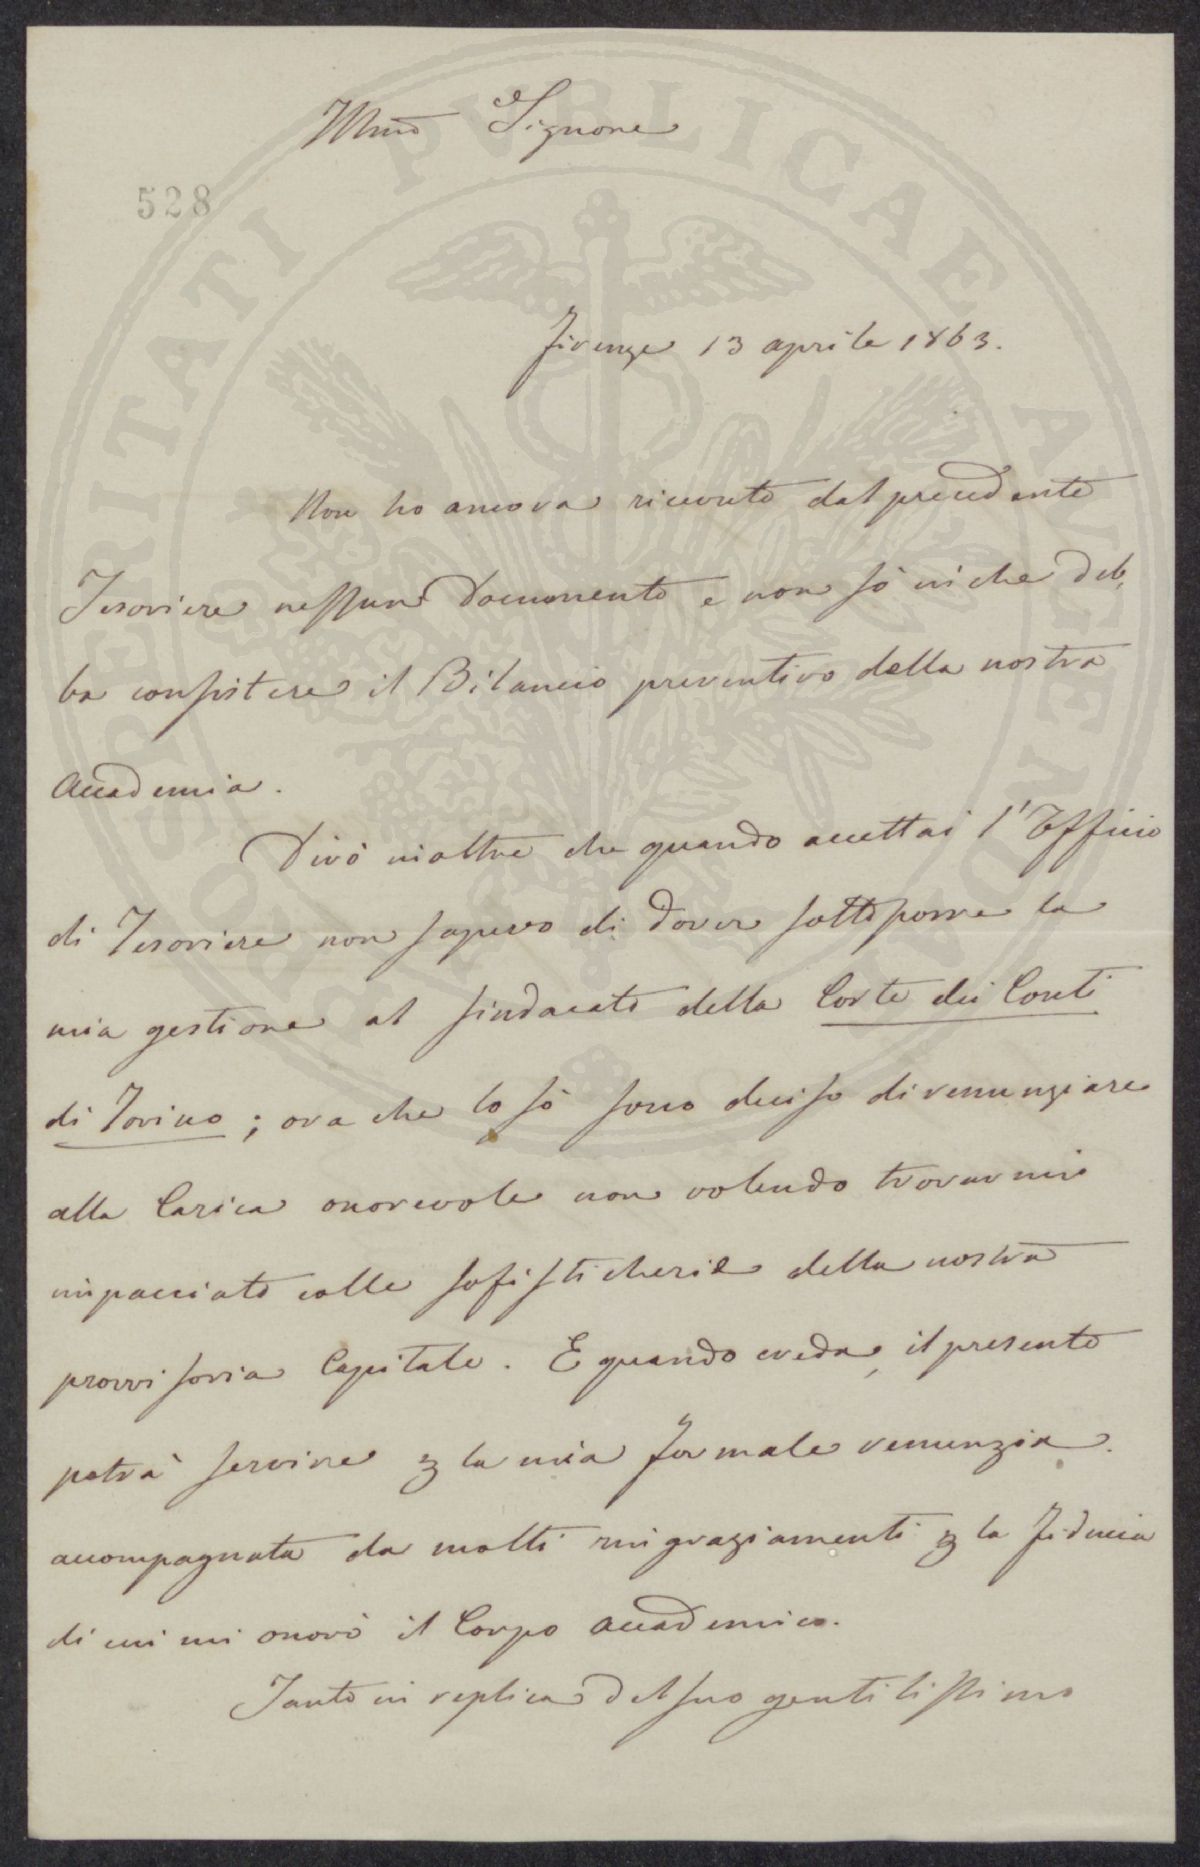 Illmo Signore
528
Firenze 13 aprile 1863.
Non ho ancora ricevuto dal precedente
Tesoriere nessun documento e non sò in che deb,
ba consistere il Bilancio preventivo della nostra
Accademia.
Dirò inoltre che quando accettai l'Officio
di Tesoriere non sapevo di dover sottoporre la
mia gestione al sindacato della Corte dei Conti
di Torino; ora che lo sò sono deciso di renunziare
alla Carica onorevole non volendo trovarmi
impacciato colle sofisticherie della nostra
provvisoria Capitale. E quando creda, il presente
potrà servire per la mia formale renunzia.
accompagnata da molti ringraziamenti per la fiducia
di cui mi onorò il Corpo Accademico.
Tanto in replica del suo gentilissimo
PROSPERITATI PVBLICAE AVGENDAE